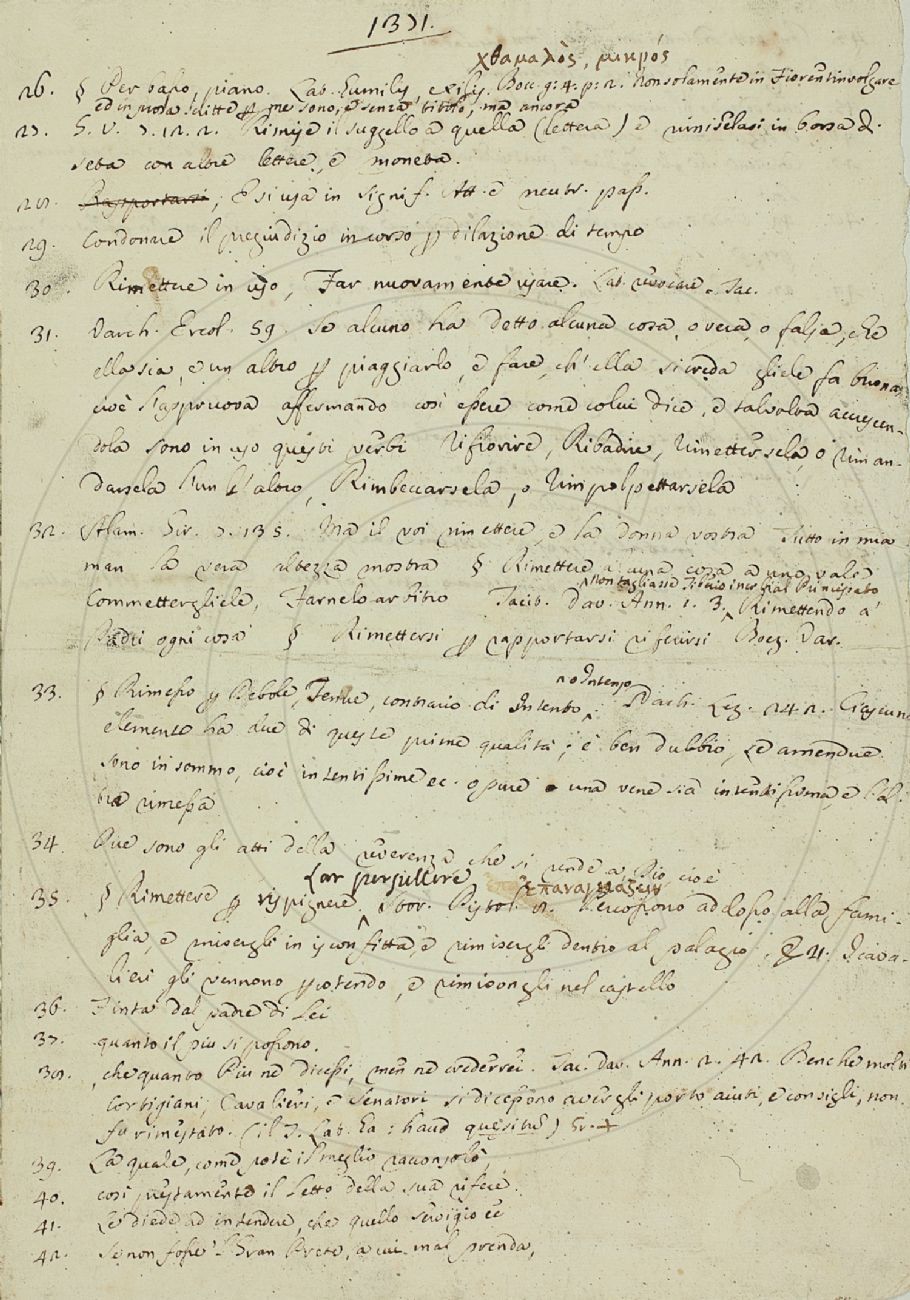 1371.
χθαμαλὸς, μικρός
26. § Per basso, piano. Lat. humilis, exilis. Bocc. g. 4. p. 2. Non solamente in Fiorentin volgare
ed in prosa scritte per me sono, e senza titolo, ma ancora
27. S. V. 7. 12. 2. Rimise il suggello a quella (lettera) e riniselasi in borsa di
seta con altre lettere, e moneta.
28. Rapportarsi; E si usa in signif. Att. e neutr. pass.
29. Condonare il pregiudizio incorso per dilazione di tempo
30. Rimettere in uso, Far nuovamente usare. Lat. revocare. Tac.
31. Varch. Ercol. 59. Se alcuno ha detto alcuna cosa, o vera, o falsa, che
ella sia, e un altro per piaggiarlo, e fare, ch' ella si creda gliele fa buona
cioè l'appruova affermando così essere come colui dice, e talvolta accrescen-
dola sono in uso questi verbi Rifiorire, Ribadire, Rimettersela, o Riman-
darsela l'un l'altro, Rimbeccarsela, o Rimpolpettarsela
32. Alam. Gir. 7. 135. Ma il voi rimettere, e la donna vostra Tutto in mia
man la vera altezza mostra § Rimettere a una cosa a uno vale
Commettergliele, Farnelo arbitro Tacit. Dav. Ann. 1. 3. Rimettendo a'
Non tagliasse Tiberio i nerbi al Principato
Padri ogni cosa § Rimettersi per rapportarsi riferirsi Boez. Var.
33. § Rimesso per Debole, Tenue, contrario di Intento, Dach. Lez. 242. Ciascuno
o Intenso
elemento ha due di queste prime qualità; è ben dubbio, se amendue
sono in sommo, cioè intensissime ec. oppure una vene sia intensissima, e l'al-
tra rimessa
34. Due sono gli atti della reverenza che si rende a Dio cioè
Lat. propellere ἐπαναγκάζειν
35. § Rimettere per rispignere. Stor. Pistol. 8. Percossono addosso alla fami-
glia, e misergli in isconfitta, e rimisergli dentro al palagio. E 21. I cava-
lieri gli vennono perotendo, e rimisongli nel castello
36. Finta dal padre di Lei
37. quanto il più si possono.
38. che quanto Più ne dicessi, men ne crederrei. Tac. Dav. Ann. 2. 42. Benche molti
Cortigiani, Cavalieri, e Senatori si dicessono avergli porto aiuti, e consigli, non
fu rimestato. (il T. Lat. ha: haud quesitum) Gr. +
39. La quale, come potè il meglio racconsolò,
40. così prestamente il Letto della sua rifece.
41. Le diede ad intendere, che quello servigio è
42. Se non fosse 'l Gran Prete, a cui mal prenda,